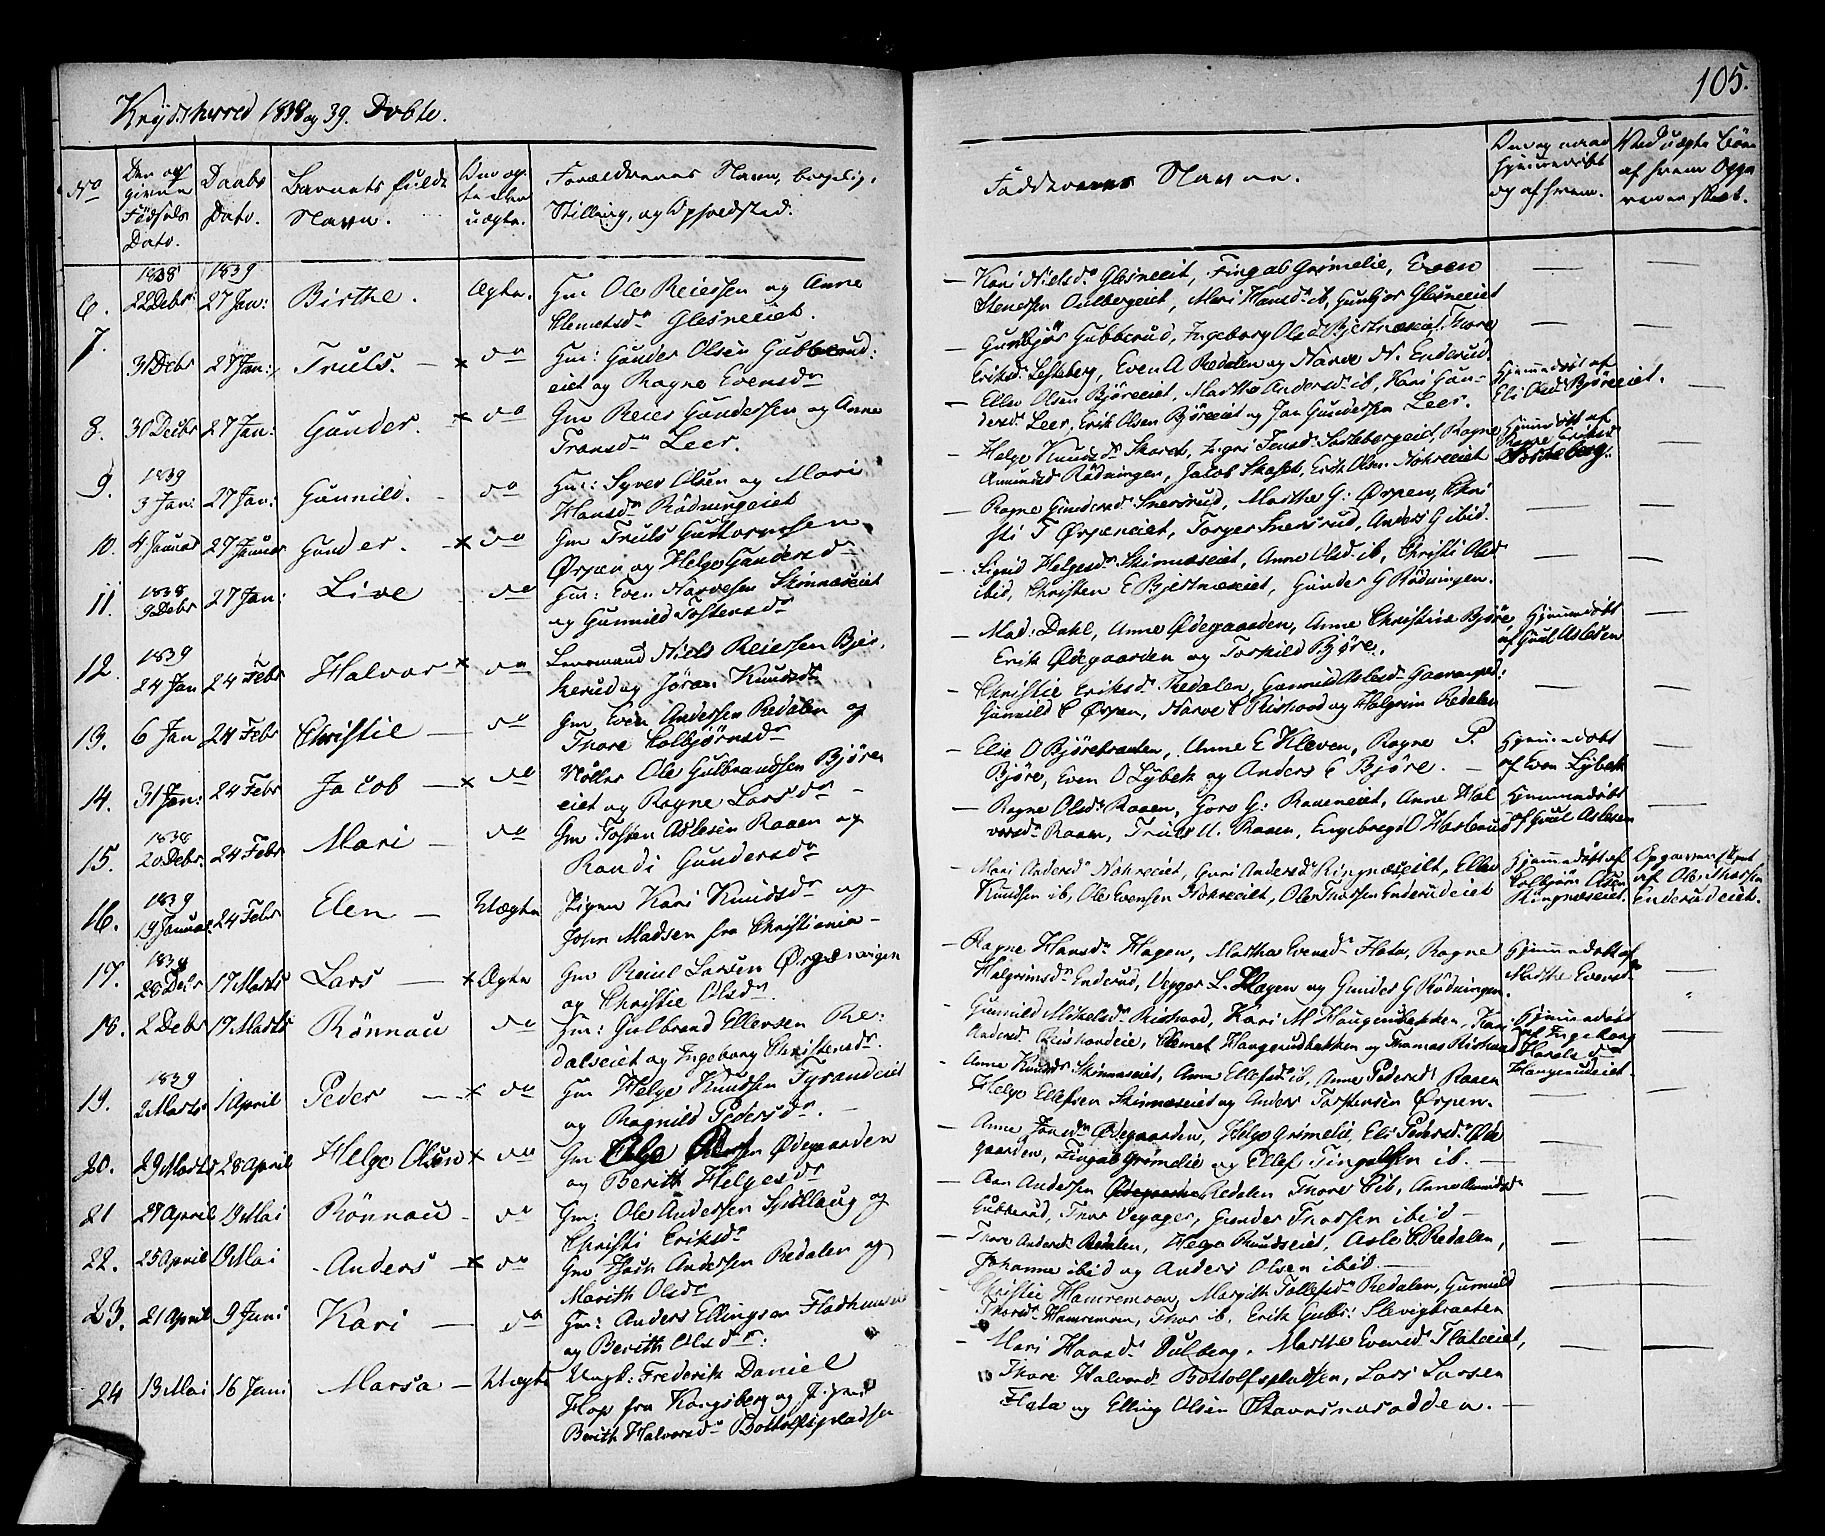 105.
Krydsherred 1838 og 39. Døbte.
No
Den op
givne
Fødsels
Dato.
Daabs
Dato.
Barnets fulde
Navn.
Om æg
te eller
uægte.
Forældrenes Navn, borgelig.
Stilling, og Opholdsted.
Faddernes Navne.
Om og naar
Hjemmedøbt
og af hvem.
Ved uægte Børn
af hvem Opga
ven er skeet.
6. 1838 22 Debr: 1839 27 Jan: Birthe. Ægte. Gm Ole Reiersen og Anne
Clemetsdr Glesneeiet.
— Kari Nielsdr Glesneeiet, Fingal Grimelie, Even
Stenersen Aulbergeiet, Mari Hansdr ib, Gunbjør Glesneeiet
7. 31 Debr 27 Jan: Truls. — × do Gm: Gunder Olsen Gubberud:
eiet og Ragne Evensdr
— Gunbjør Gubberud, Ingeborg Olsd Bjertnæseiet, Thore
Eriksdr Lesteberg, Even A Redalen og Narve N. Enderud.
8. 30 Decbr 27 Jan: Gunder. — × do Gm Reier Gundersen og Anne
Fransdr Leer.
— Ellev Olsen Bjøreeiet, Marthe Andersdr ib, Kari Gun-
dersdr Leer, Erik Olsen Bjøreeiet og Jan Gundersen Leer.
Hjemmedøbt af
Eli Olsdr Bjøreeiet.
9. 1839 3 Jan: 27 Jan: Gunnild. - do Gm: Syver Olsen og Mari
Hansdr Rødningeiet
— Helge Knudsdr Skaret, Ingri Jensdr Lastebergeiet, Ragne
Amundsd Rødningen, Jacob Skaret, Erik Olsen Nokreeiet
Hjemmedøbt af
Ragne Eriksd
10. 4 Januar 27 Januar Gunder. — × do Gm Truls Guttormsen
Ørpen og Helge Gundersdr
— Ragne Gundersdr Snersrud, Marthe G: Ørpen, Chri
sti T Ørpeneiet, Torger Snersrud, Anders G ibid.
11. 1838 9 Debr 27 Jan: Live do Gm: Even Narvesen Skinnæseiet
og Gunnild Tostensdr
— Sigrid Helgesdr Skinnæseiet, Anne Olsd ib, Christi Olsd
ibid, Christen E Bjertnæseiet, Gunder G Rødningen.
12. 1839 24 Jan 24 Febr Halvor × do Lensmand Niels Reiersen Bjer
kerud og Jøran Knudsdr
— Mad: Dahl, Anne Ødegaarden, Anne Christine Bjøre,
Erik Ødegaarden og Torkild Bjøre.
Hjemmedøbt
af Gul Aslesen
13. 6 Jan 24 Febr Christie — do Gm Even Andersen Redalen og
Thore Colbjørnsdr
— Christie Eriksdr Redalen, Gunnild Aslesdr
Gunnild C Ørpen, Narve C Rishovd og Halgrim Redalen
14. 31 Jan: 24 Febr Jacob — × do Møller Ole Gulbrandsen Bjøre
eiet og Ragne Larsdr —
— Elie O Bjørebraaten, Anne E Kleven, Ragne P.
Bjøre, Even O Lybek og Anders E Bjøre. —
Hjemmedøbt
af Even Lybek
15. 1838 20 Debr: 24 Febr Mari — do Gm Tosten Aslesen Raaen og
Randi Gundersdr
— Ragne Olsdr Raaen, Goro G: Raaeneiet, Anne Hal
vorsdr Raaen, Truls N. Raaen, Engebregt O Haslerud
Hjemmedøbt
af Gul Aslesen
16. 1839 19 Januar 24 Febr Elen — Uægte Pigen Kari Knudsdr og
John Madsen fra Christiania —
— Mari Andersd Nokreeiet, Guri Andersdr Ringnæseiet, Ellev
Knudsen ib, Ole Evensen Nokreeiet, Ole Thorsen Enderudeiet
Hjemmedøbt af
Colbjørn Olsen
Ringnæseiet.
Opgaven skeet
af Ole Thorsen
Enderudeiet.
17. 1838 28 Debr 17 Marts Lars — × Ægte Gm Reiul Larsen Ørpenvigen
og Christie Olsdr.
— Ragne Hansdr Hagen, Martha Evensdr Flata, Ragne
Halgrimsdr Enderud, Vegger L. Hagen og Gunder G Rødningen.
Hjemmedøbt af
Marthe Evensdr
18. 2 Debr 17 Marts Rønnau do Gm: Gulbrand Ellevsen Re:
dalseiet og Ingeborg Christensdr.
— Gunnild Mikelsdr Rishovd, Kari M Haugerudbakken, Kari
Andersd Rishovdeie, Clemet Haugerudbakken og Thomas Rishovd
Hjemmedøbt
af Ingeborg
Haugerudeiet.
19. 1839 2 Marts 1 April Peder — × do Gm Helge Knudsen Fyrandeiet
og Ragnild Pedersdr. —
— Anne Knudsdr Skinnæseiet, Anne Ellefsdr ib, Anne Pedersdr Raaen
Helge Ellefsen Skinnæseiet og Anders Torstensen Ørpen.
20. 29 Marts 28 April Helge Olsen × do Gm Ole Olsen Ødegaarden
og Berith Helgesdr
— Anne Jonsdr Ødegaarden, Helge Grimelie, Eli Pedersdr Øde
gaarden, Fingal Grimelie og Ellef Fingalsen ib. —
21 27 April 19 Mai Rønnau - do Gm: Ole Andersen Spilhaug og
Christi Eriksdr
— Aan Andersen Redalen Thore C ib, Anne Amundsdr
Gubberud, Thor Vegager, Gunder Thorsen ibid —
22. 25 April 19 Mai Anders — × do Gm Halv Andersen Redalen og
Marith Olsdr
— Thore Andersdr Redalen, Helge Rundseiet, Asle C Redalen,
Johanne ibid og Anders Olsen ibid. —
23. 21 April 9 Juni Kari — do Gm: Anders Ellingsen Fladhuus
og Berith Olsdr:
Christie Hamremoen, Margith Tollefsdr Redalen, Gunnild
Thorsdr Hamremoen, Thor ib, Erik Gulbr: Slevigbraaten
24 13 Mai 16 Juni Marsa — Uægte Ungk: Frederik Daniel
Hop fra Kongsberg og Pigen
Berith Halvorsdr Bottolfspladsen
— Mari Hansdr Aulberg, Marthe Evensdr Flateeiet,
Thore Halvorsd Bottolfspladsen, Lars Larsen
Flata og Elling Olsen Stavnsnæsodden. —